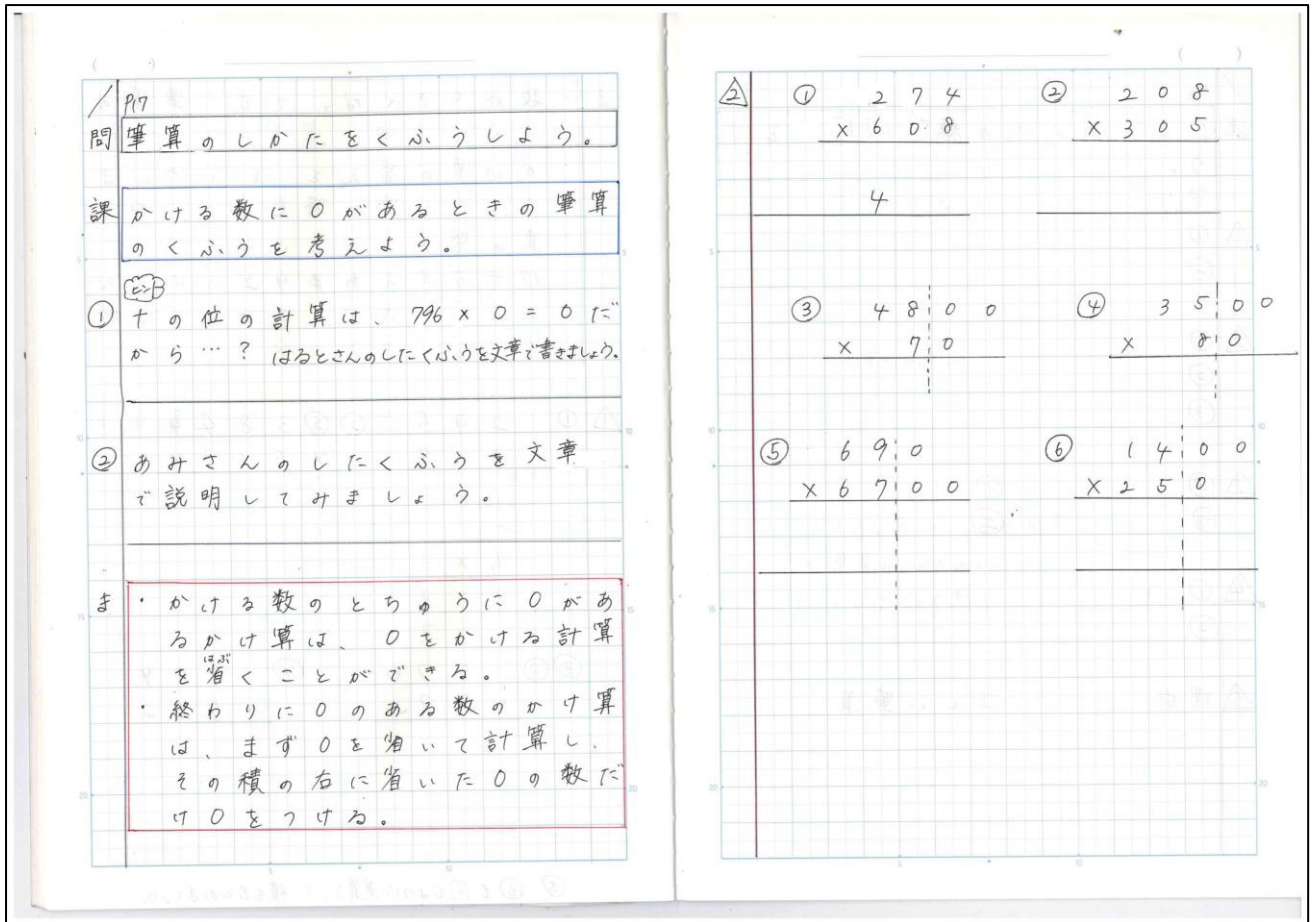 P17
問 筆算のしかたをくふうしよう。
課 かける数に0があるときの筆算
のくふうを考えよう。
ヒント
① 十の位の計算は、796×0=0だ
から…? はるとさんのしたくふうを文章で書きましょう。
② あみさんのしたくふうを文章
で説明してみましょう。
ま ・かける数のとちゅうに0があ
るかけ算は、0をかける計算
を省くことができる。
はぶ
・終わりに0のある数のかけ算
は、まず0を省いて計算し、
その積の右に省いた0の数だ
け0をつける。
2 ① 274
×608
4
② 208
×305
③ 4800
× 70
④ 3500
× 80
⑤ 690
×6700
⑥ 1400
×250